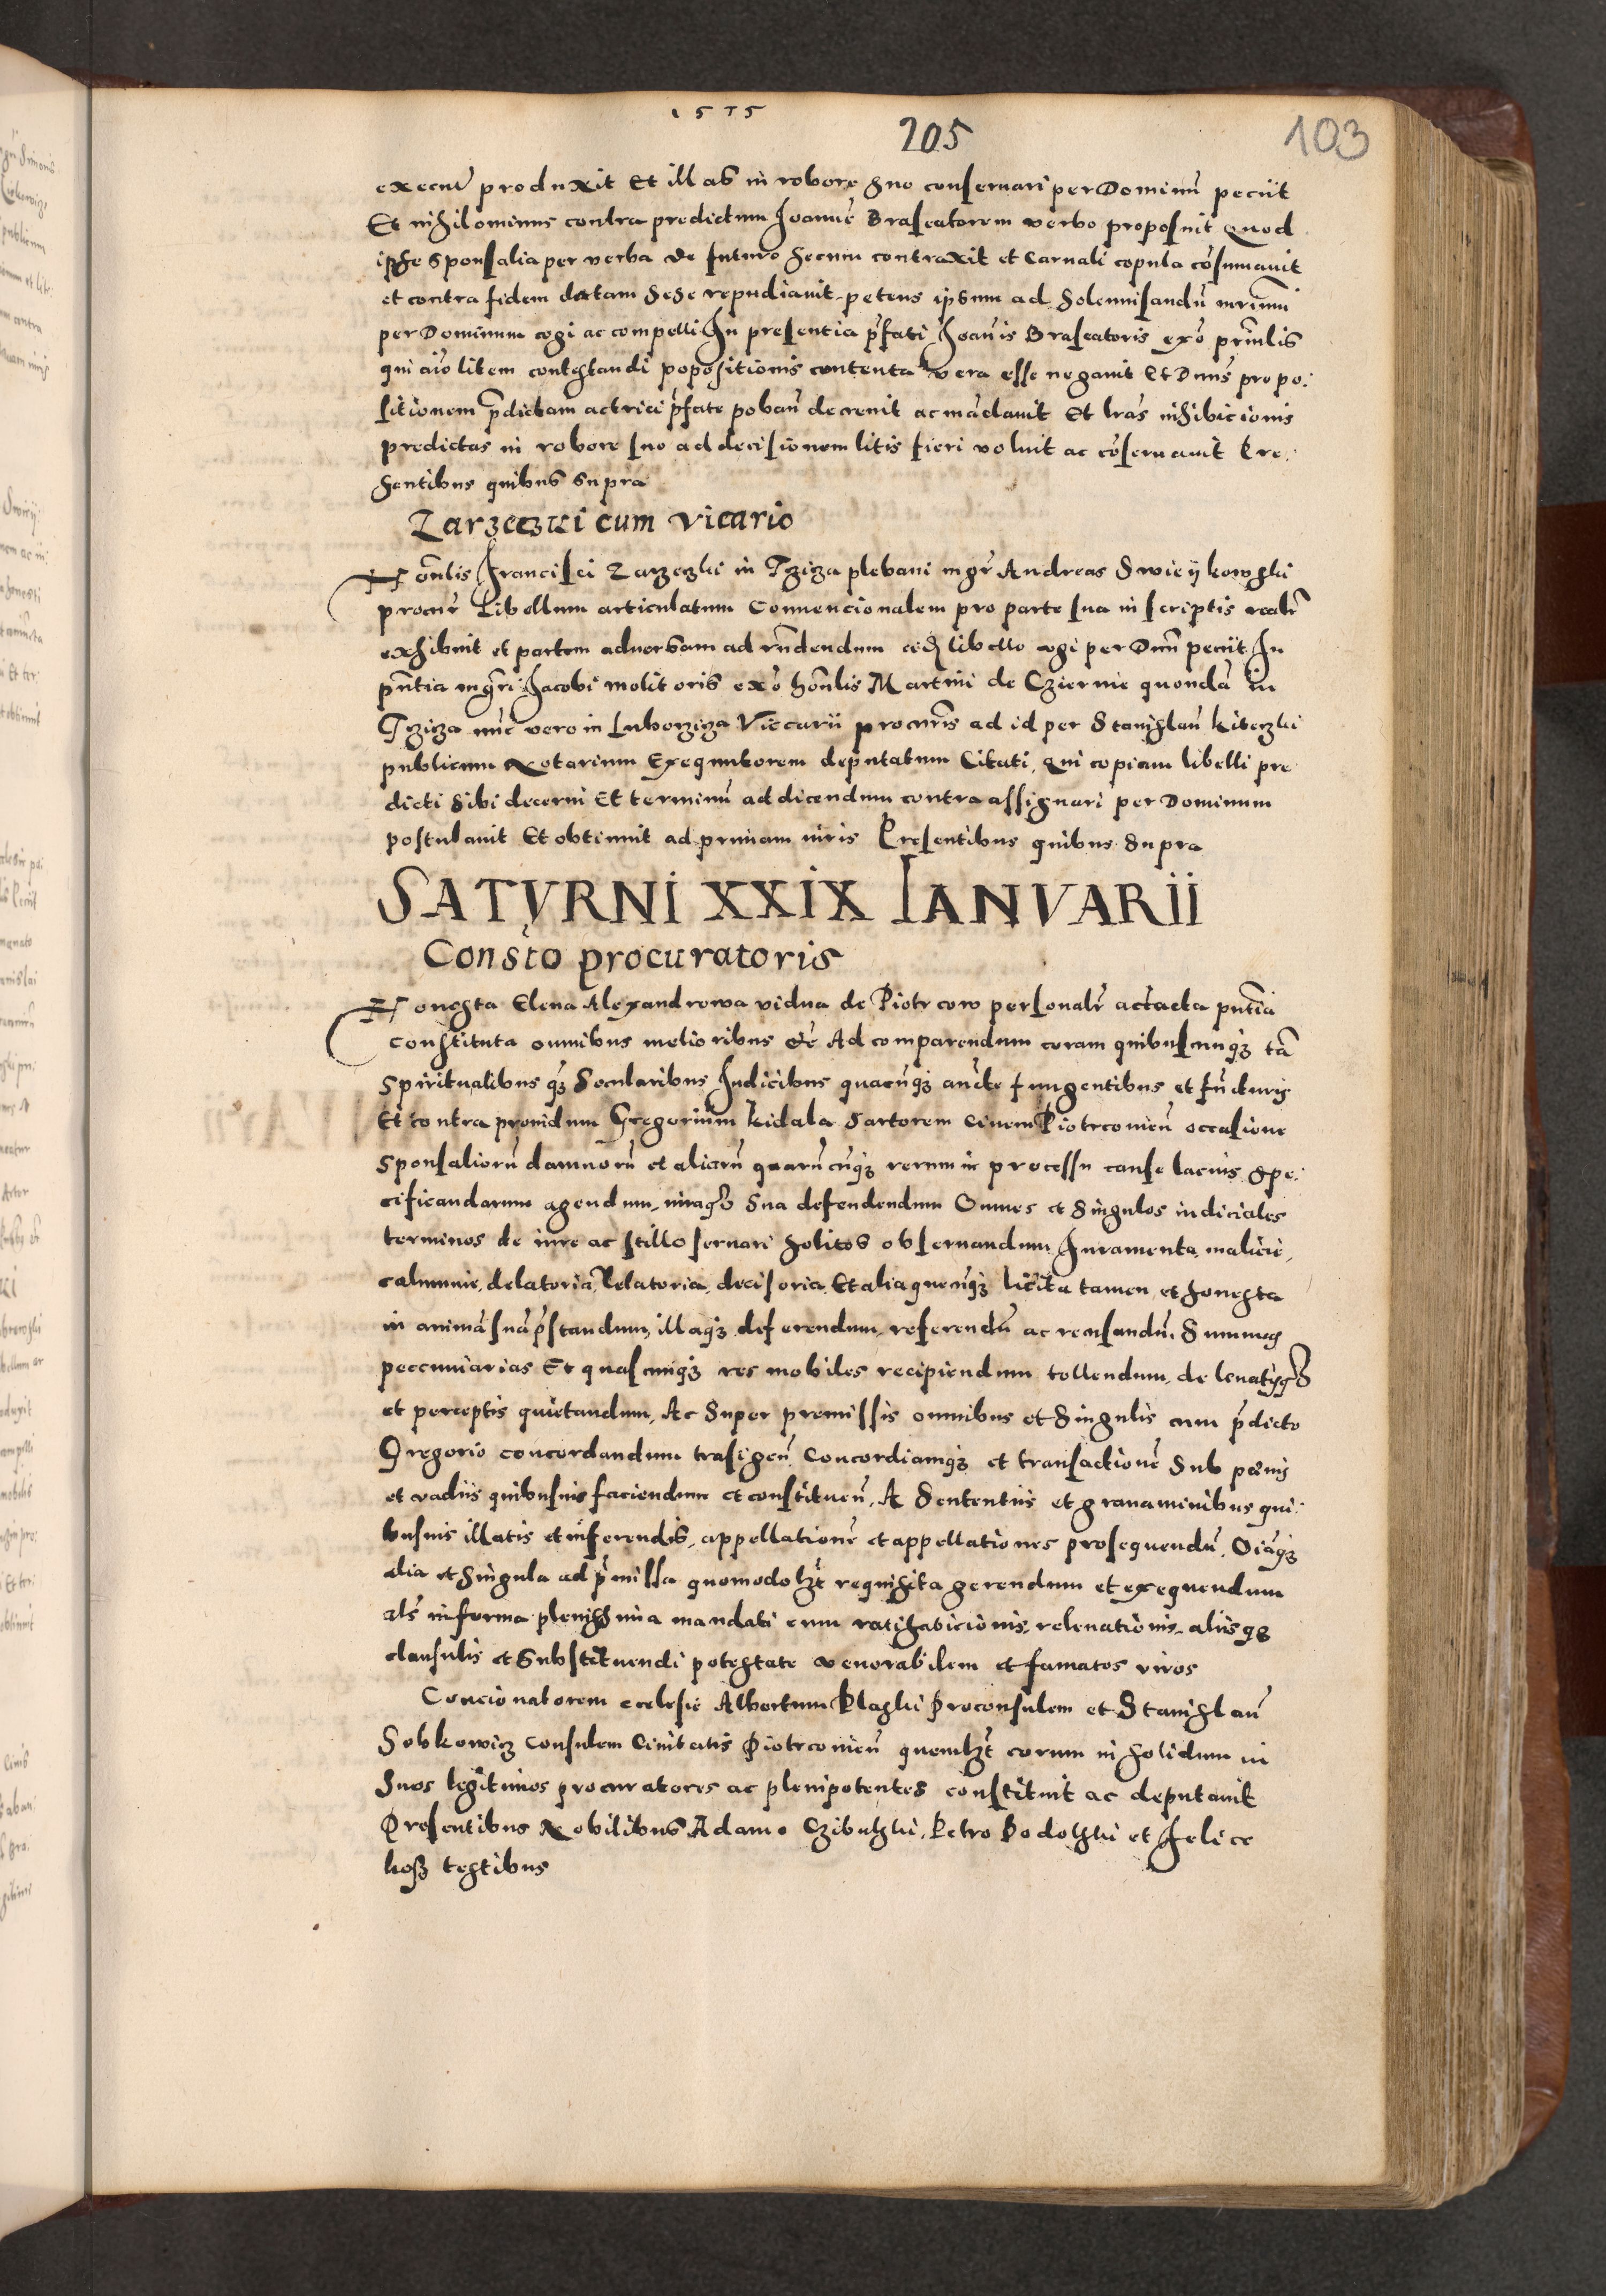 1575
205
103
execut̃ produxit Et illas in robore suo conseruari per Dominũ peciit
Et nihilominus contra predictum Joannẽ Braseatorem verbo proposuit Quod
ipse sponsalia per verba de futuro secum contraxit et Carnali copula cõsumauit
et contra fidem datam sese repudiauit petens ipsum ad solennisandũ mr̃imũ
per Dominum cogi ac compelli In presentia p̃fati Joañis Braseatoris exõ pr̃nlis
qui aĩo litem contestandi popositionis contenta vera esse negauit Et Dnũs propo:
sitionem p̃dictam actrici p̃fate pobañ decreuit ac mãdauit Et lr̃as inhibicionis
predictas in robore suo ad decisionem litis fieri voluit ac cõseruauit Pre:
sentibus quibus supra
Zarzeczki cum vicario
Honʳlis Francisci Zarzeczki in Tziza plebani mgr̃ Andreas Swieykowski
procur̃ Libellum articulatum Conuencionalem pro parte sua in scriptis realr̃
exhibuit et partem aduersam ad rñdendum libello cogi per Dnũ peciit In
pñtia mgr̃i Jacobi molitoris exõ hoñlis Martini de Cziernie quondã in
Tziza nũc vero in Luborziza Viccarii procur̃is ad id per Stanislaũ kiterzki
publicum Notarium Exequutorem deputatum Citati, qui copiam libelli pre
dicti sibi decerni Et terminũ ad dicendum contra assignari per Dominum
postulauit Et obtinuit ad primam iuris Presentibus quibus supra
SATVRNI XXIX IANVARII
Consto procuratoris
Honesta Elena Alexandrowa vidua de Piotrcow personalr̃ acta acta pñtia
constituta omnibus melioribus &ẽ Ad comparendum coram quibuscunq3 tã
Spiritualibus q̃3 Secularibus Judicibus quacũq3 aucte fungentibus et fũcturis
Et contra prouidum Gregorium kidala Sartorem Ciuem Piotrconieñ occasione
sponsaliorũ damnorũ et aliarũ quarũcũq3 rerum in processu cause lacius spe:
cificandarum agendum, iuraq3 sua defendendum Omnes et singulos iudiciales
terminos de iure ac stillo seruari solitos obseruandum Juramenta malicie,
calumnie, delatoria, Relatoria, decisoria, Et alia quecũq3 licita tamen et honesta
in animã suã p̃standum, illaq3 deferendum, referendũ ac recusandũ, summas
peccuniarias Et quascunq3 res mobiles recipiendum tollendum, de leuatisq3
et perceptis quietandum, Ac super premissis omnibus et singulis cum p̃dicto
Gregorio concordandum trãsigeñ Concordiamq3 et transactionẽ sub pœnis
et vadiis quibusuis faciendum et constitueñ, A sententiis et grauaminibus qui:
busuis illatis et inferendis, appellationẽ et appellationes prosequendũ, Oĩaq3
alia et singula ad p̃missa quomodolẓt requisita gerendum et exequendum
als̃ in forma plenissima mandati cum ratihabicionis, releuationis, aliisq3
clausulis et substituendi potestate venerabilem et famatos viros
Concionatorem ecclesie Albertum Plaski Proconsulem et Stanislaũ
Sobkowicz Consulem Ciuitatis Piotrconieñ quemlẓt eorum in solidum in
suos legitimos procuratores ac plenipotentes constituit ac deputauit
Presentibus Nobilibus Adamo Czibulski, Petro Podolski et Felice
koss testibus